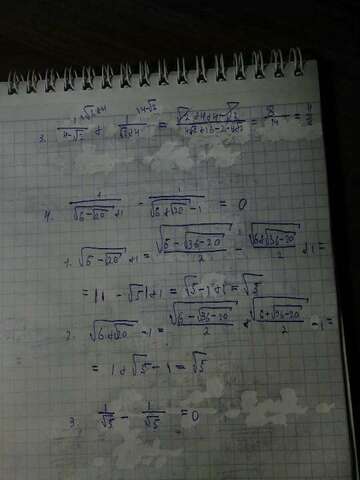 3. 1/(4-√2) + 1/(√2+4) = (√2+4+4-√2)/(4√2+16-2-4√2) = 8/14 =
4. 1/(√(6-√20)+1) - 1/(√(6+√20)-1) = 0
1. √(6-√20)+1 = √((6-√(36-20))/2) - √((6+√(36-20))/2) +1 =
= |1-√5|+1 = √5-1+1 = √5
2. √(6+√20)-1 = √((6-√(36-20))/2) + √((6+√(36-20))/2) -1 =
= 1+√5-1 = √5
3. 1/√5 - 1/√5 = 0